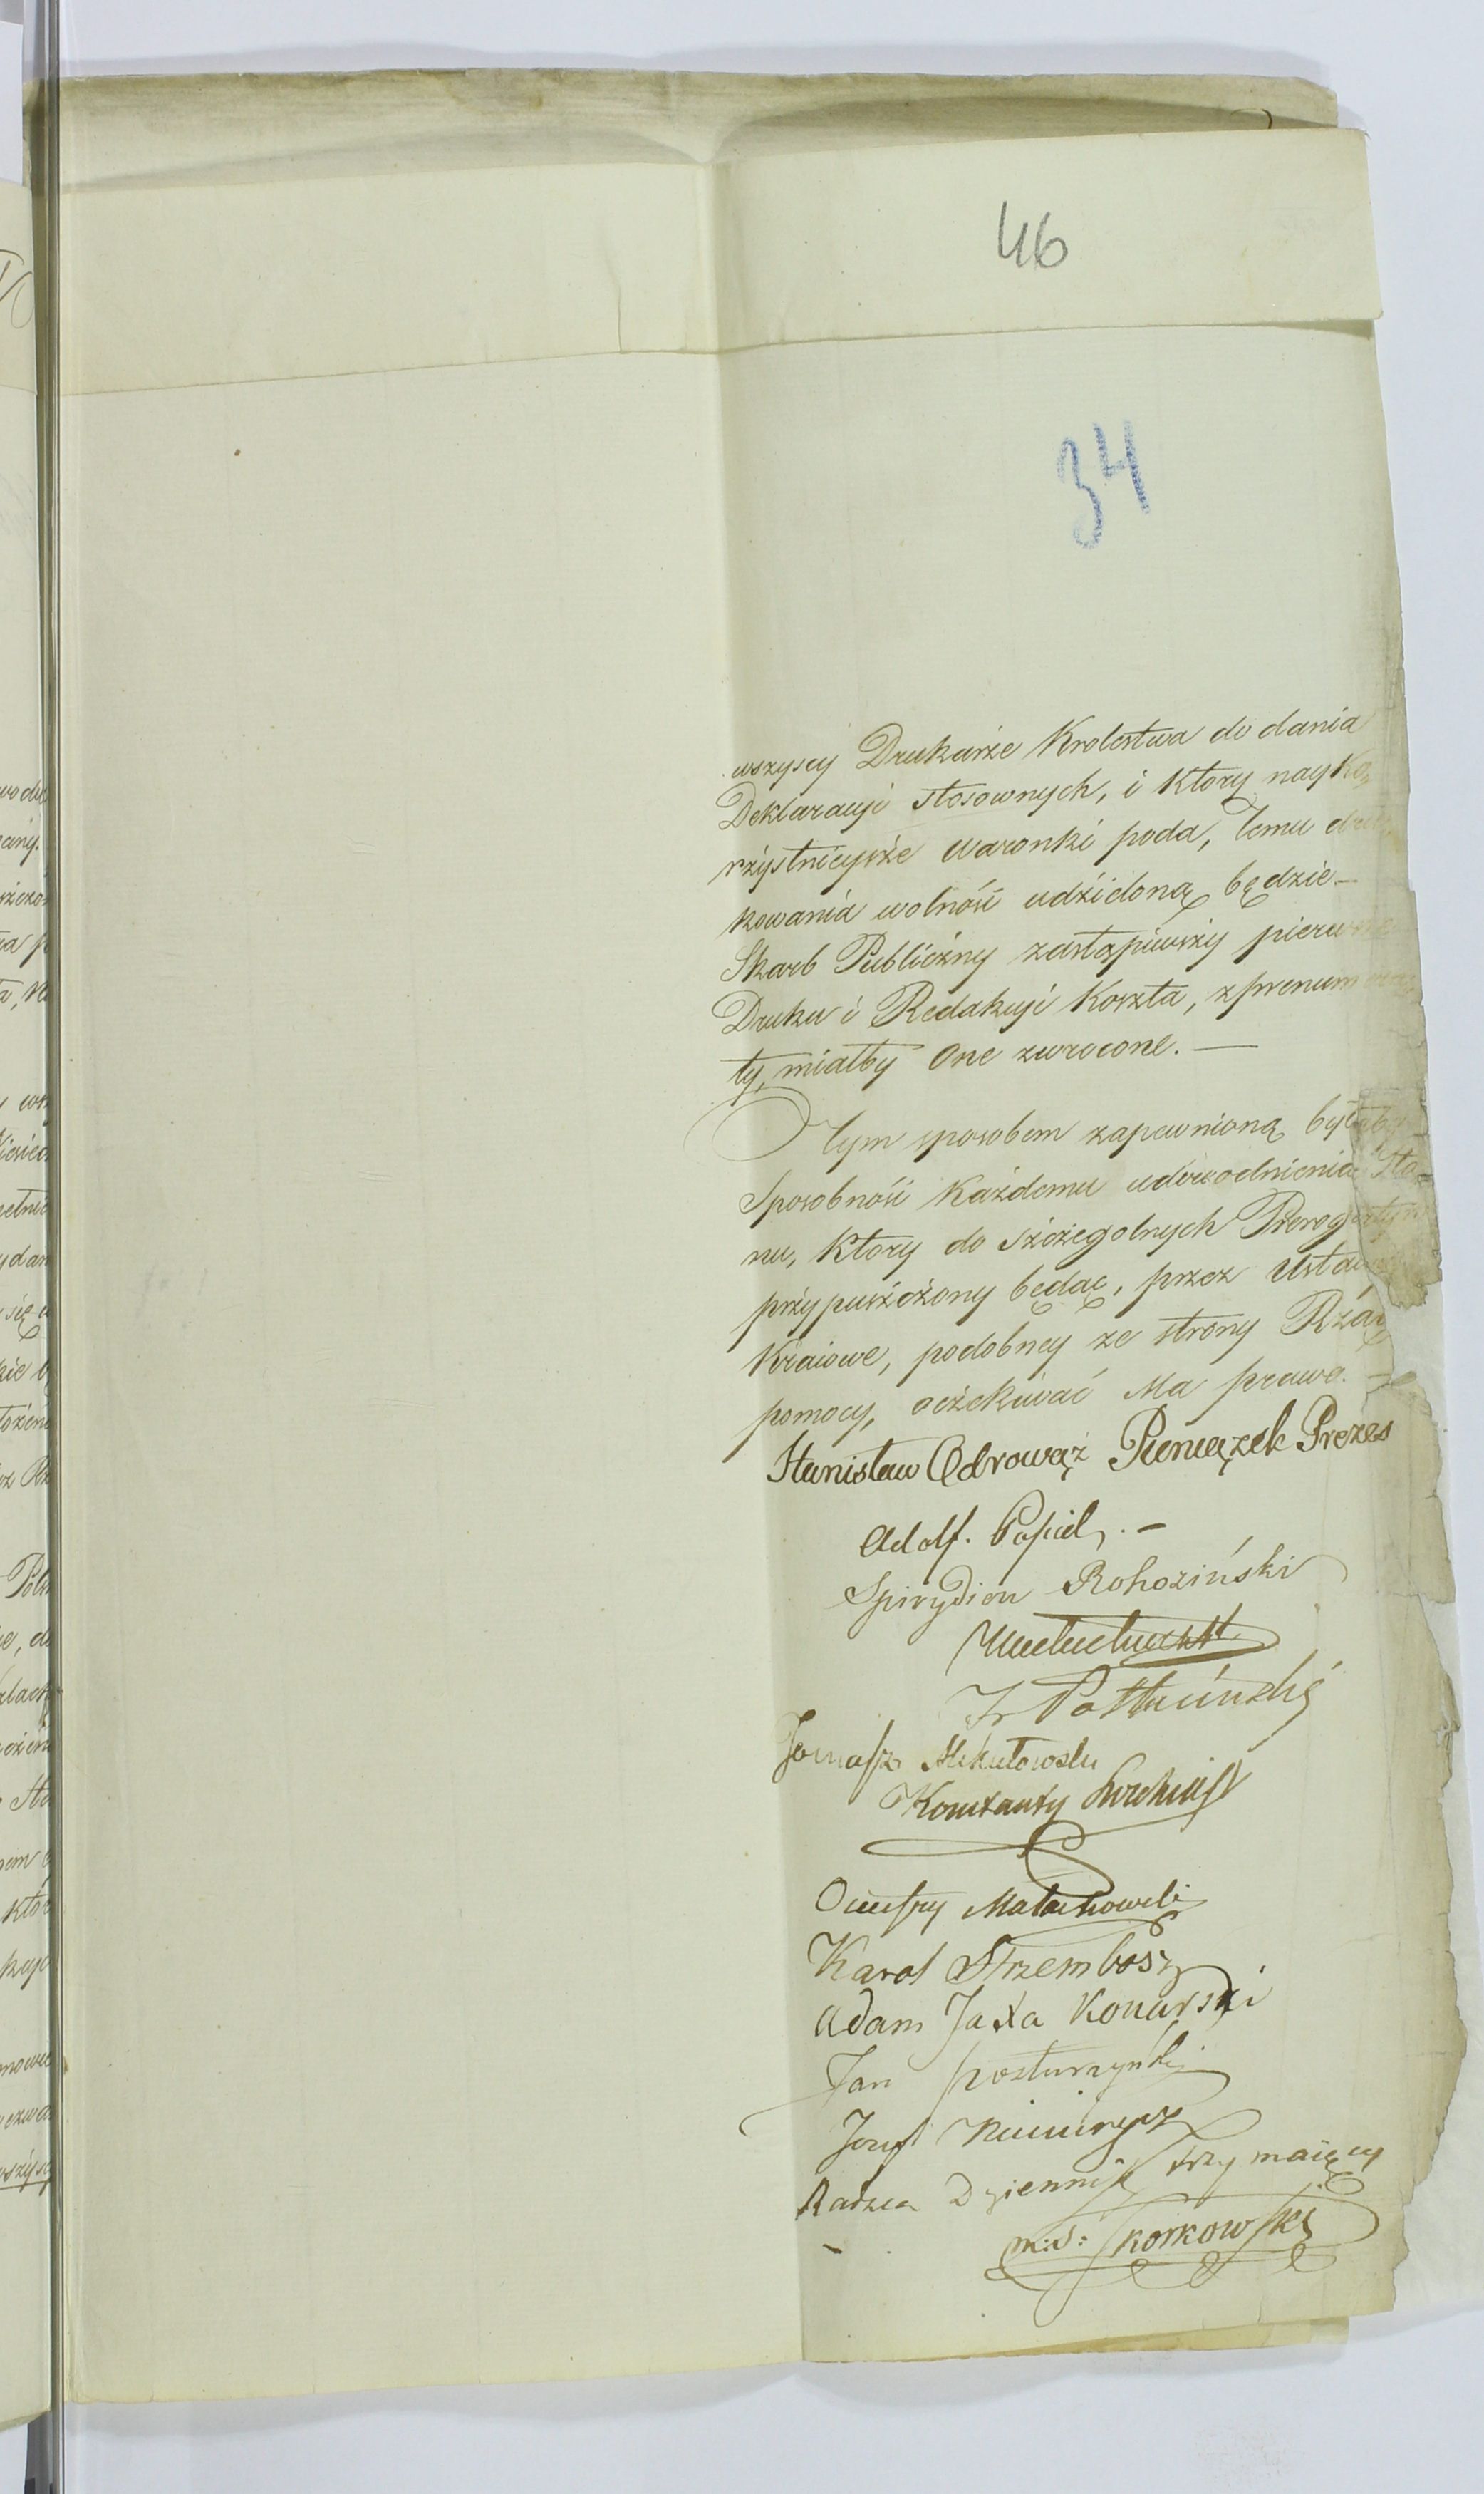 46
34
wszyscy Drukarze Krolestwa do dania
Deklaracyi stosownych, i ktory nayko
rzystnieysze waronki poda, temu dru
kowania wolność udzieloną będzie —
Skarb Publiczny zastąpiwszy pierwsze
Druku i Redakcyi koszta, z prenumera
ty, miałby One zwrocone. —
Tym sposobem zapewnioną byłaby
Sposobność każdemu udowodnienia Sta
nu, ktory do szczegolnych Prerogatyw
przypuszczony będąc, przez Ustawy
Kraiowe, podobney ze strony Rządu
pomocy, oczekiwać Ma prawo. —
Stanisław Odrowąż Pieniązek Prezes
Adolf. Popiel. —
Spirydion Rohoziński
Tomasz Mikułowski
Konstanty
Onufry Małachowski
Karol Strzembosz
Adam Jaxa Konarski
Jan
Jozef
Radzca Dziennik trzymaiący
m: s: Skorkowski